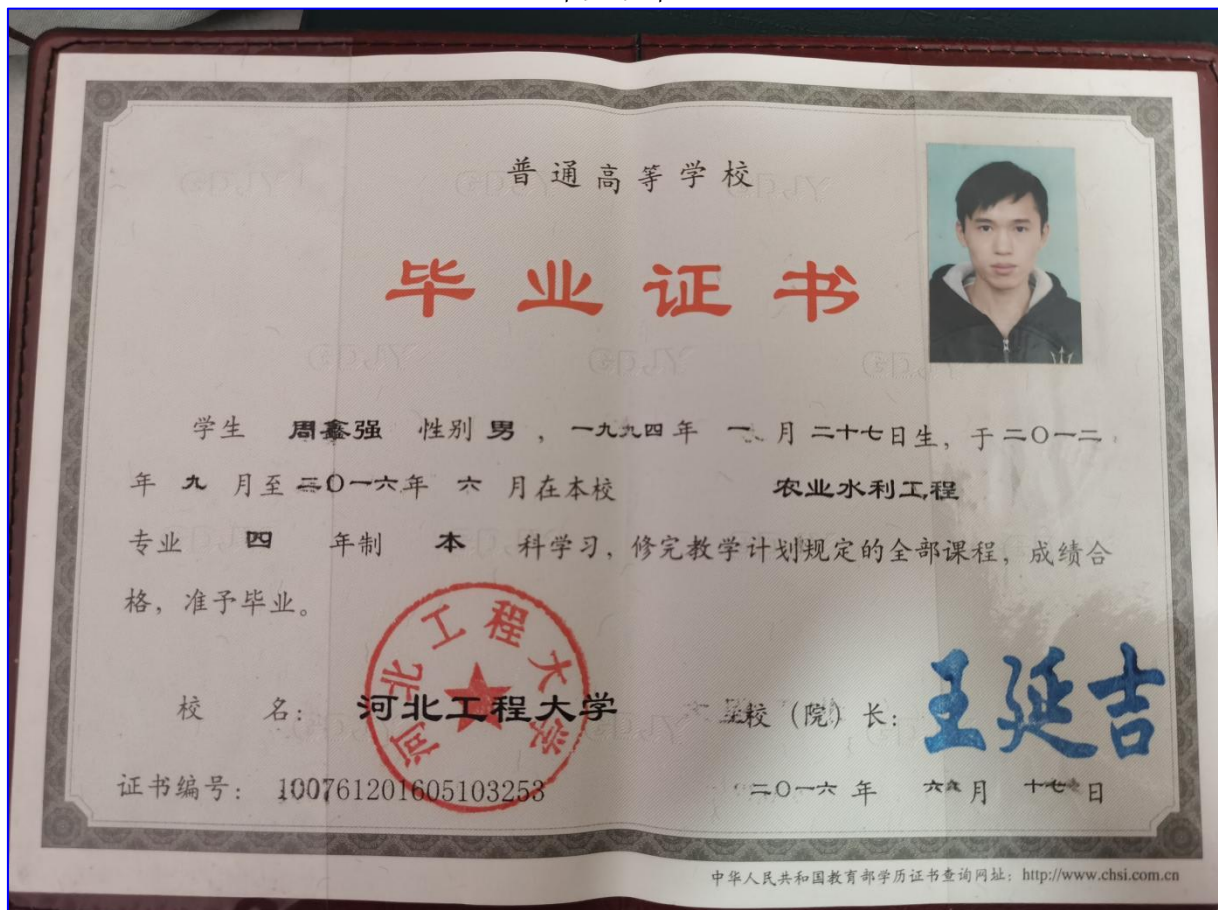 普通高等学校
毕业证书
学生 周鑫强 性别 男 ，一九九四年 一 月 二十七日生，于二〇一二
年 九 月至二〇一六年 六 月在本校 农业水利工程
专业 四 年制 本 科学习，修完教学计划规定的全部课程，成绩合
格，准予毕业。
河北工程大学
校 名： 河北工程大学 校（院）长： 王延吉
证书编号： 100761201605103253 二〇一六 年 六 月 十七 日
中华人民共和国教育部学历证书查询网址：http://www.chsi.com.cn